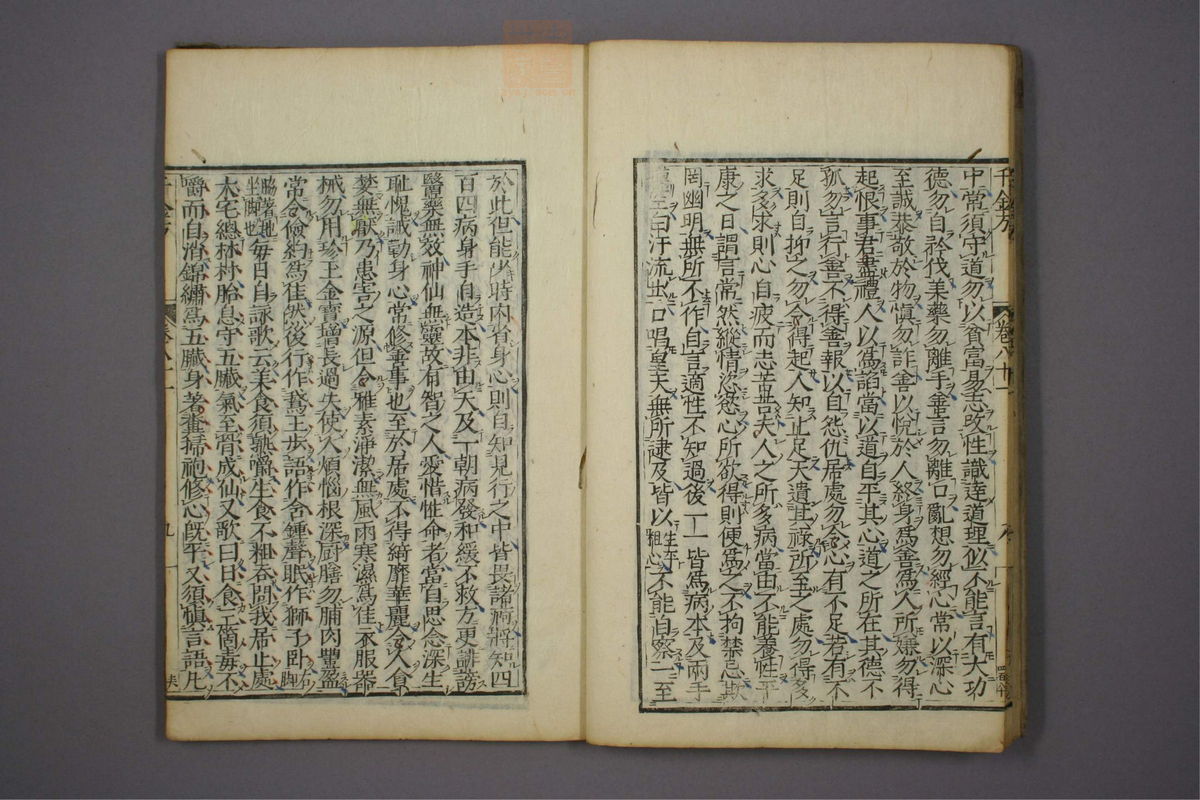 千金方 卷八十一
中常須守道勿以貧富易志改性識達道理似不能言有大功
德勿自矜伐美藥勿離手善言勿離口亂想勿經心常以深心
至誠恭敬於物慎勿詐善以悅於人終身爲善爲人所嫌勿得
起恨事君盡禮人以爲諂當以道自平其心道之所在其德不
孤勿言行善不得善報以自怨仇居處勿令心有不足若有不
足則自抑之勿令得起人知止足天遺其祿所至之處勿得多
求多求則心自疲而志苦若夫人之所多病當由不能養性平
康之日謂言常然縱情恣慾心所欲得則便爲之不拘禁忌欺
罔幽明無所不作自言適性不知過後一一皆爲病本及兩手
摸空白汗流出口唱皇天無所逮及皆以生平粗心不能自察一至
於此但能少時內省身心則自知見行之中皆畏諸痾將知四
百四病身手自造本非由天及一朝病發和緩不救方更誹謗
醫藥無效神仙無靈故有智之人愛惜性命者當自思念深生
恥愧誡勒身心常修善事也至於居處不得綺靡華麗令人貪
婪無厭乃患害之源但令雅素淨潔無風雨寒濕爲佳衣服器
械勿用珍玉金寶增長過失使人煩惱根深厨膳勿脯肉豐盈
常令儉約爲佳然後行作鵞王步語作含鍾聲眠作獅子卧右脚
脇著地坐脚也每日自詠歌云美食須熟嚼生食不粗吞問我居止處
大宅總林村胎息守五臟氣至骨成仙又歌曰日食三箇毒不
嚼而自消錦繡爲五臟身著糞掃袍修心既平又須慎言語凡